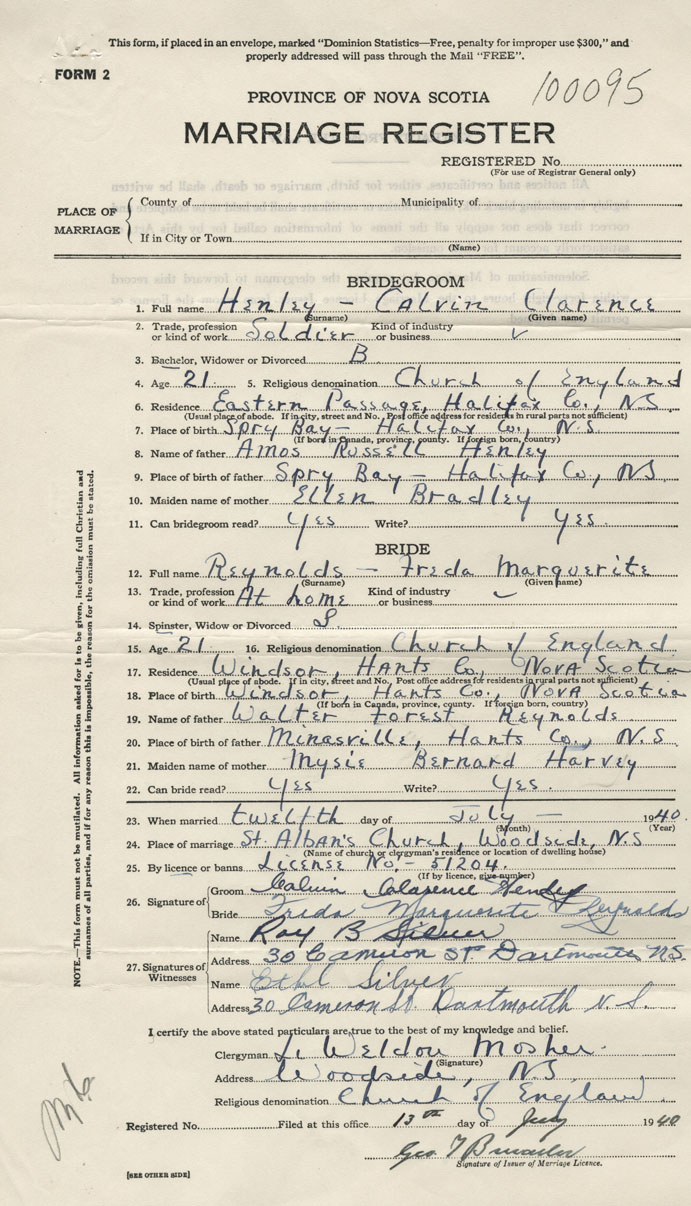 This form, if placed in an envelope, marked "Dominion Statistics—Free, penalty for improper use $300," and
properly addressed will pass through the Mail "FREE".
FORM 2
100095
PROVINCE OF NOVA SCOTIA
MARRIAGE REGISTER
REGISTERED No.
(For use of Registrar General only)
PLACE OF MARRIAGE
County of Municipality of
If in City or Town
(Name)
BRIDEGROOM
1. Full name Henley — Calvin Clarence
(Surname) (Given name)
2. Trade, profession or kind of work Soldier Kind of industry or business ✓
3. Bachelor, Widower or Divorced B
4. Age 21 5. Religious denomination Church of England
6. Residence Eastern Passage, Halifax Co., NS
(Usual place of abode. If in city, street and No. Post office address for residents in rural parts not sufficient)
7. Place of birth Spry Bay — Halifax Co., N.S.
(If born in Canada, province, county. If foreign born, country)
8. Name of father Amos Russell Henley
9. Place of birth of father Spry Bay — Halifax Co., NS
10. Maiden name of mother Ellen Bradley
11. Can bridegroom read? Yes Write? Yes.
BRIDE
12. Full name Reynolds — Freda Marguerite
(Surname) (Given name)
13. Trade, profession or kind of work At home Kind of industry or business ✓
14. Spinster, Widow or Divorced S.
15. Age 21 16. Religious denomination Church of England
17. Residence Windsor, Hants Co., Nova Scotia
(Usual place of abode. If in city, street and No. Post office address for residents in rural parts not sufficient)
18. Place of birth Windsor, Hants Co., Nova Scotia
(If born in Canada, province, county. If foreign born, country)
19. Name of father Walter Forest Reynolds
20. Place of birth of father Minasville, Hants Co., N.S
21. Maiden name of mother Mysie Bernard Harvey
22. Can bride read? Yes Write? Yes.
23. When married twelfth day of July — 1940.
(Month) (Year)
24. Place of marriage St. Alban's Church, Woodside, N.S
(Name of church or clergyman's residence or location of dwelling house)
25. By licence or banns License No. - 51204.
(If by licence, give number)
26. Signature of
Groom Calvin Clarence Henley
Bride Freda Marguerite Reynolds
27. Signatures of Witnesses
Name Ray B Silver
Address 30 Cameron St Dartmouth N.S.
Name Ethel Silver
Address 30 Cameron St. Dartmouth N.S.
I certify the above stated particulars are true to the best of my knowledge and belief.
Clergyman L. Weldon Mosher.
(Signature)
Address Woodside, N.S
Religious denomination Church of England
Registered No. Filed at this office 13th day of July 1940
Geo T
Signature of Issuer of Marriage Licence.
[SEE OTHER SIDE]
NOTE.—This form must not be mutilated. All information asked for is to be given, including full Christian and
surnames of all parties, and if for any reason this is impossible, the reason for the omission must be stated.